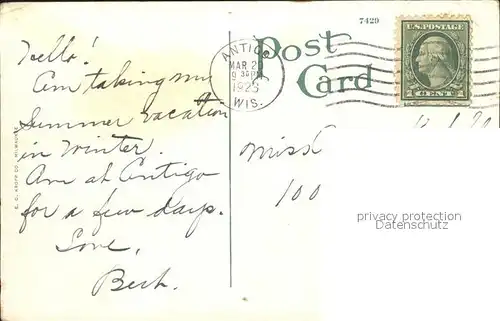 7429
U.S. POSTAGE
1 CENT 1
ANTIGO
MAR 20
9 30 PM
192
WIS.
Post
Card
Hello!
Am taking my
Summer vacation
in Winter.
Am at Antigo
for a few days.
Love,
Bert.
E. C. KROPP CO., MILWAUKEE
Miss
100
privacy protection
Datenschutz